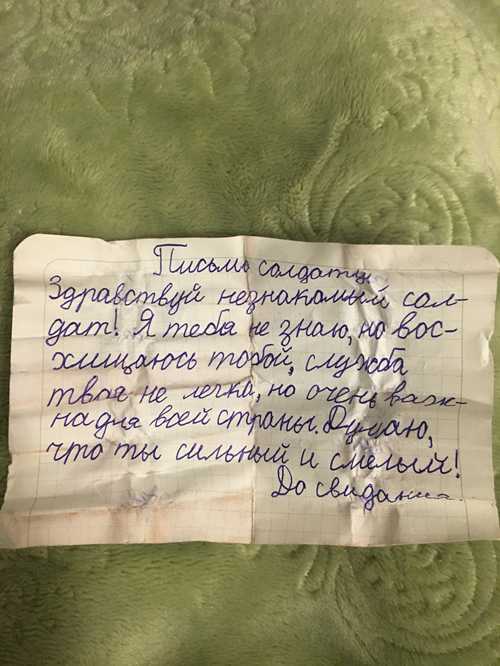 Письмо солдату
Здравствуй незнакомый сол-
дат! Я тебя не знаю, но вос-
хищаюсь тобой, служба
твоя не легка, но очень важ-
на для всей страны. Думаю,
что ты сильный и смелый!
До свидания.